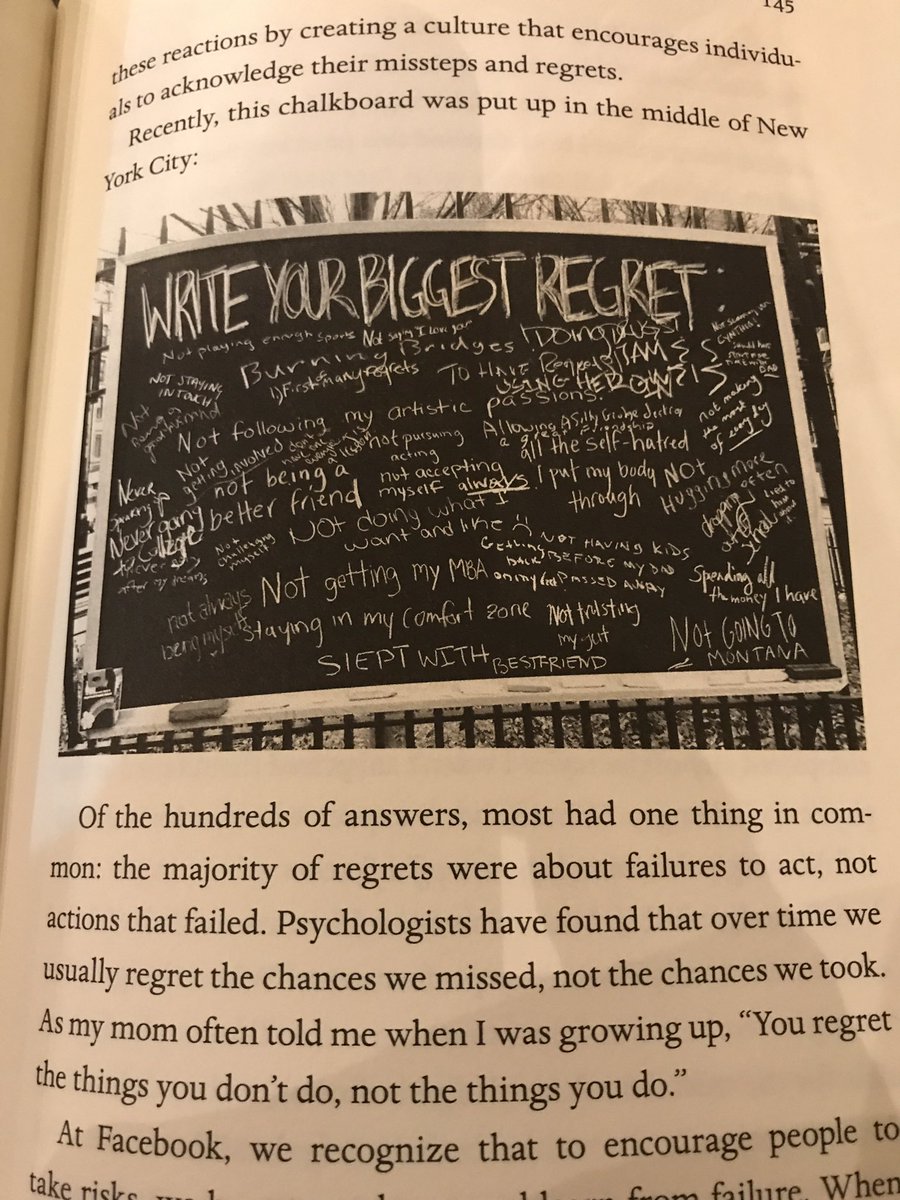 145
these reactions by creating a culture that encourages individu-
als to acknowledge their missteps and regrets.
Recently, this chalkboard was put up in the middle of New
York City:
WRITE YOUR BIGGEST REGRET
Not playing enough sports
Not saying I love you
Burning Bridges
1) First of Many regrets
TO HAVE
passions.
USING HEROIN
NOT STAYING
IN TOUCH
Not following my artistic
Not
getting involved
not being a
better friend
not pursuing
acting
not accepting
myself always
a great friendship
all the self-hatred
I put my body
through
NOT
Hugging more
often
not making
the most
of everyday
Never
Never going
to College
after my dreams
Not
challenging
myself
Not doing what I
want and like
NOT HAVING KIDS
BEFORE MY DAD
PASSED AWAY
Getting
back
on my
dropping
out of
school
lied to
Spending all
the money I have
not always
being myself
Not getting my MBA
Staying in my comfort zone
Not trusting
my gut
Not GOING TO
MONTANA
SlEPT WITH
BESTFRIEND
Of the hundreds of answers, most had one thing in com-
mon: the majority of regrets were about failures to act, not
actions that failed. Psychologists have found that over time we
usually regret the chances we missed, not the chances we took.
As my mom often told me when I was growing up, “You regret
the things you don’t do, not the things you do.”
At Facebook, we recognize that to encourage people to
take risks, we from failure. When